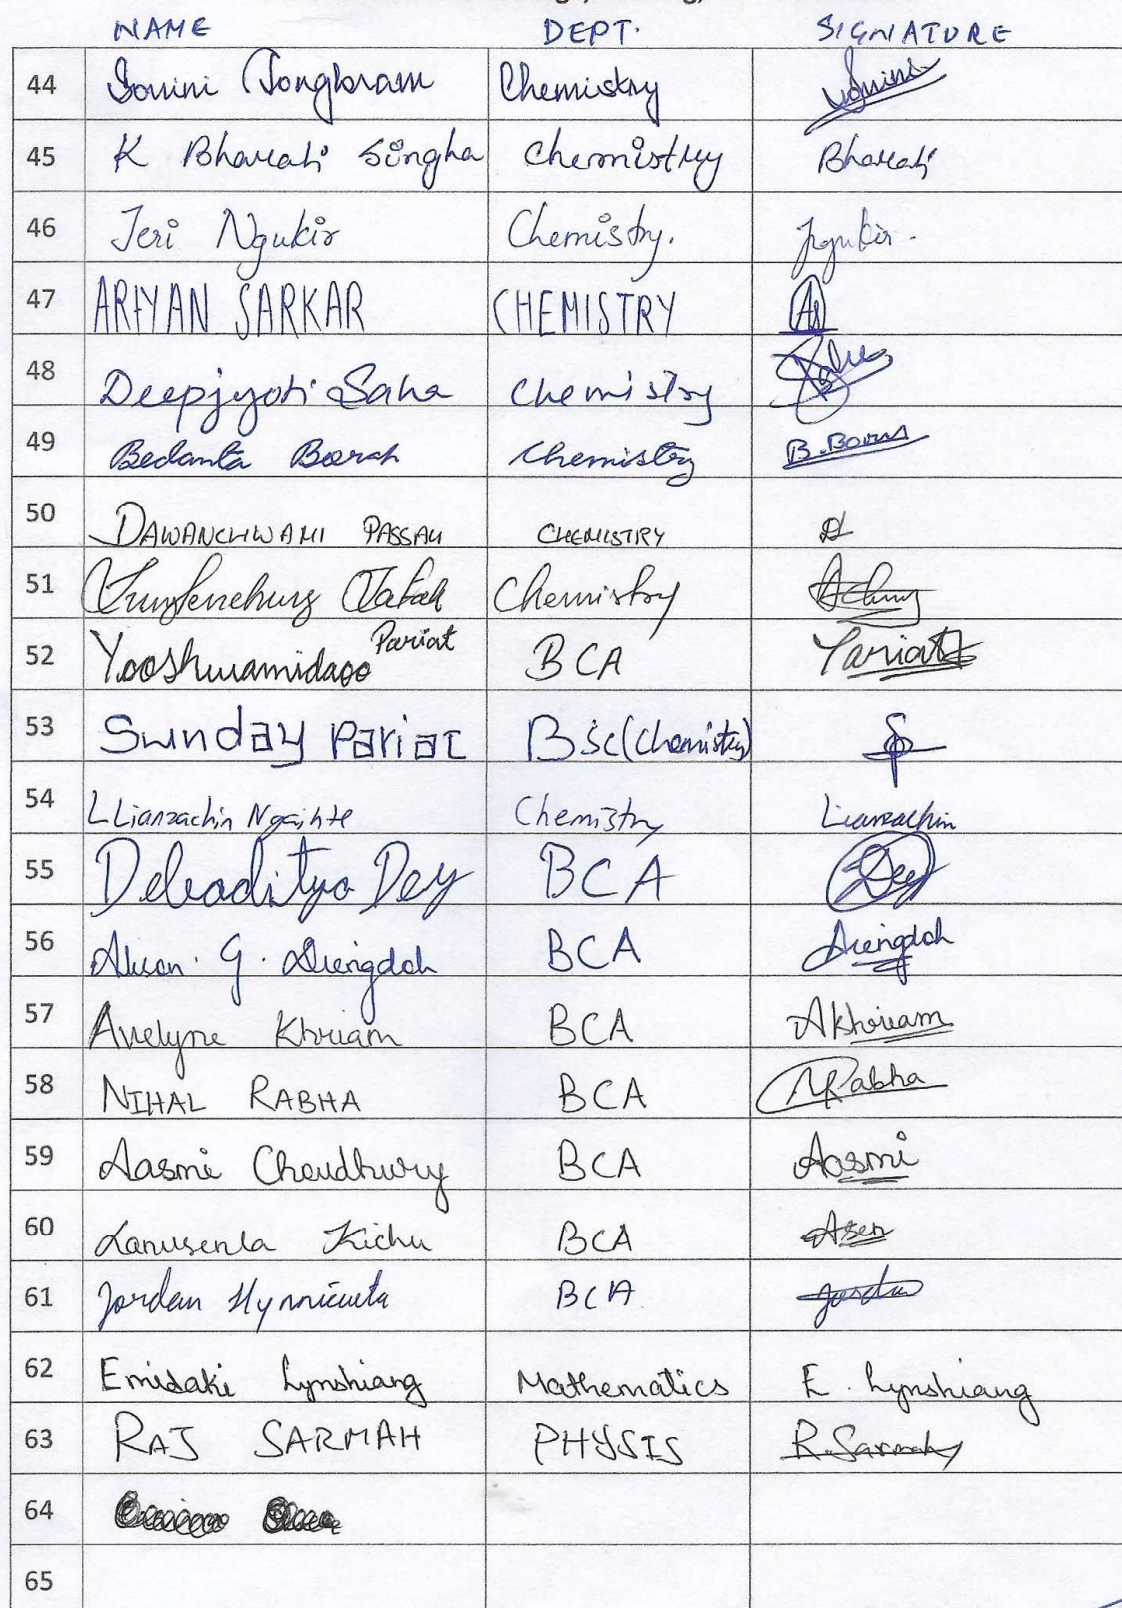 NAME DEPT. SIGNATURE
44 Somini Tongbram Chemistry
45 K Bharati Singha Chemistry Bharati
46 Jeri Ngukir Chemistry. Jngukir.
47 ARIYAN SARKAR CHEMISTRY
48 Deepjyoti Saha Chemistry
49 Bedanta Borah Chemistry B.Borah
50 DAWANCHWAMI PASSAH CHEMISTRY
51 Chemistry
52 Yooshwamidaoo Pariat BCA Pariat
53 Sunday Pariat Bsc(Chemistry)
54 L Lianzachin Ngaihte Chemistry Lianzachin
55 Debaditya Dey BCA Dey
56 Alison. G. Diengdoh BCA Diengdoh
57 Avelyne Khriam BCA AKhriam
58 NIHAL RABHA BCA NRabha
59 Aasmi Choudhury BCA Aasmi
60 Lanusenla Kichu BCA Asen
61 Jordan Hynniewta BCA Jordan
62 Emidaki Lynshiang Mathematics E. Lynshiang
63 RAJ SARMAH PHYSIS R.Sarmah
64
65